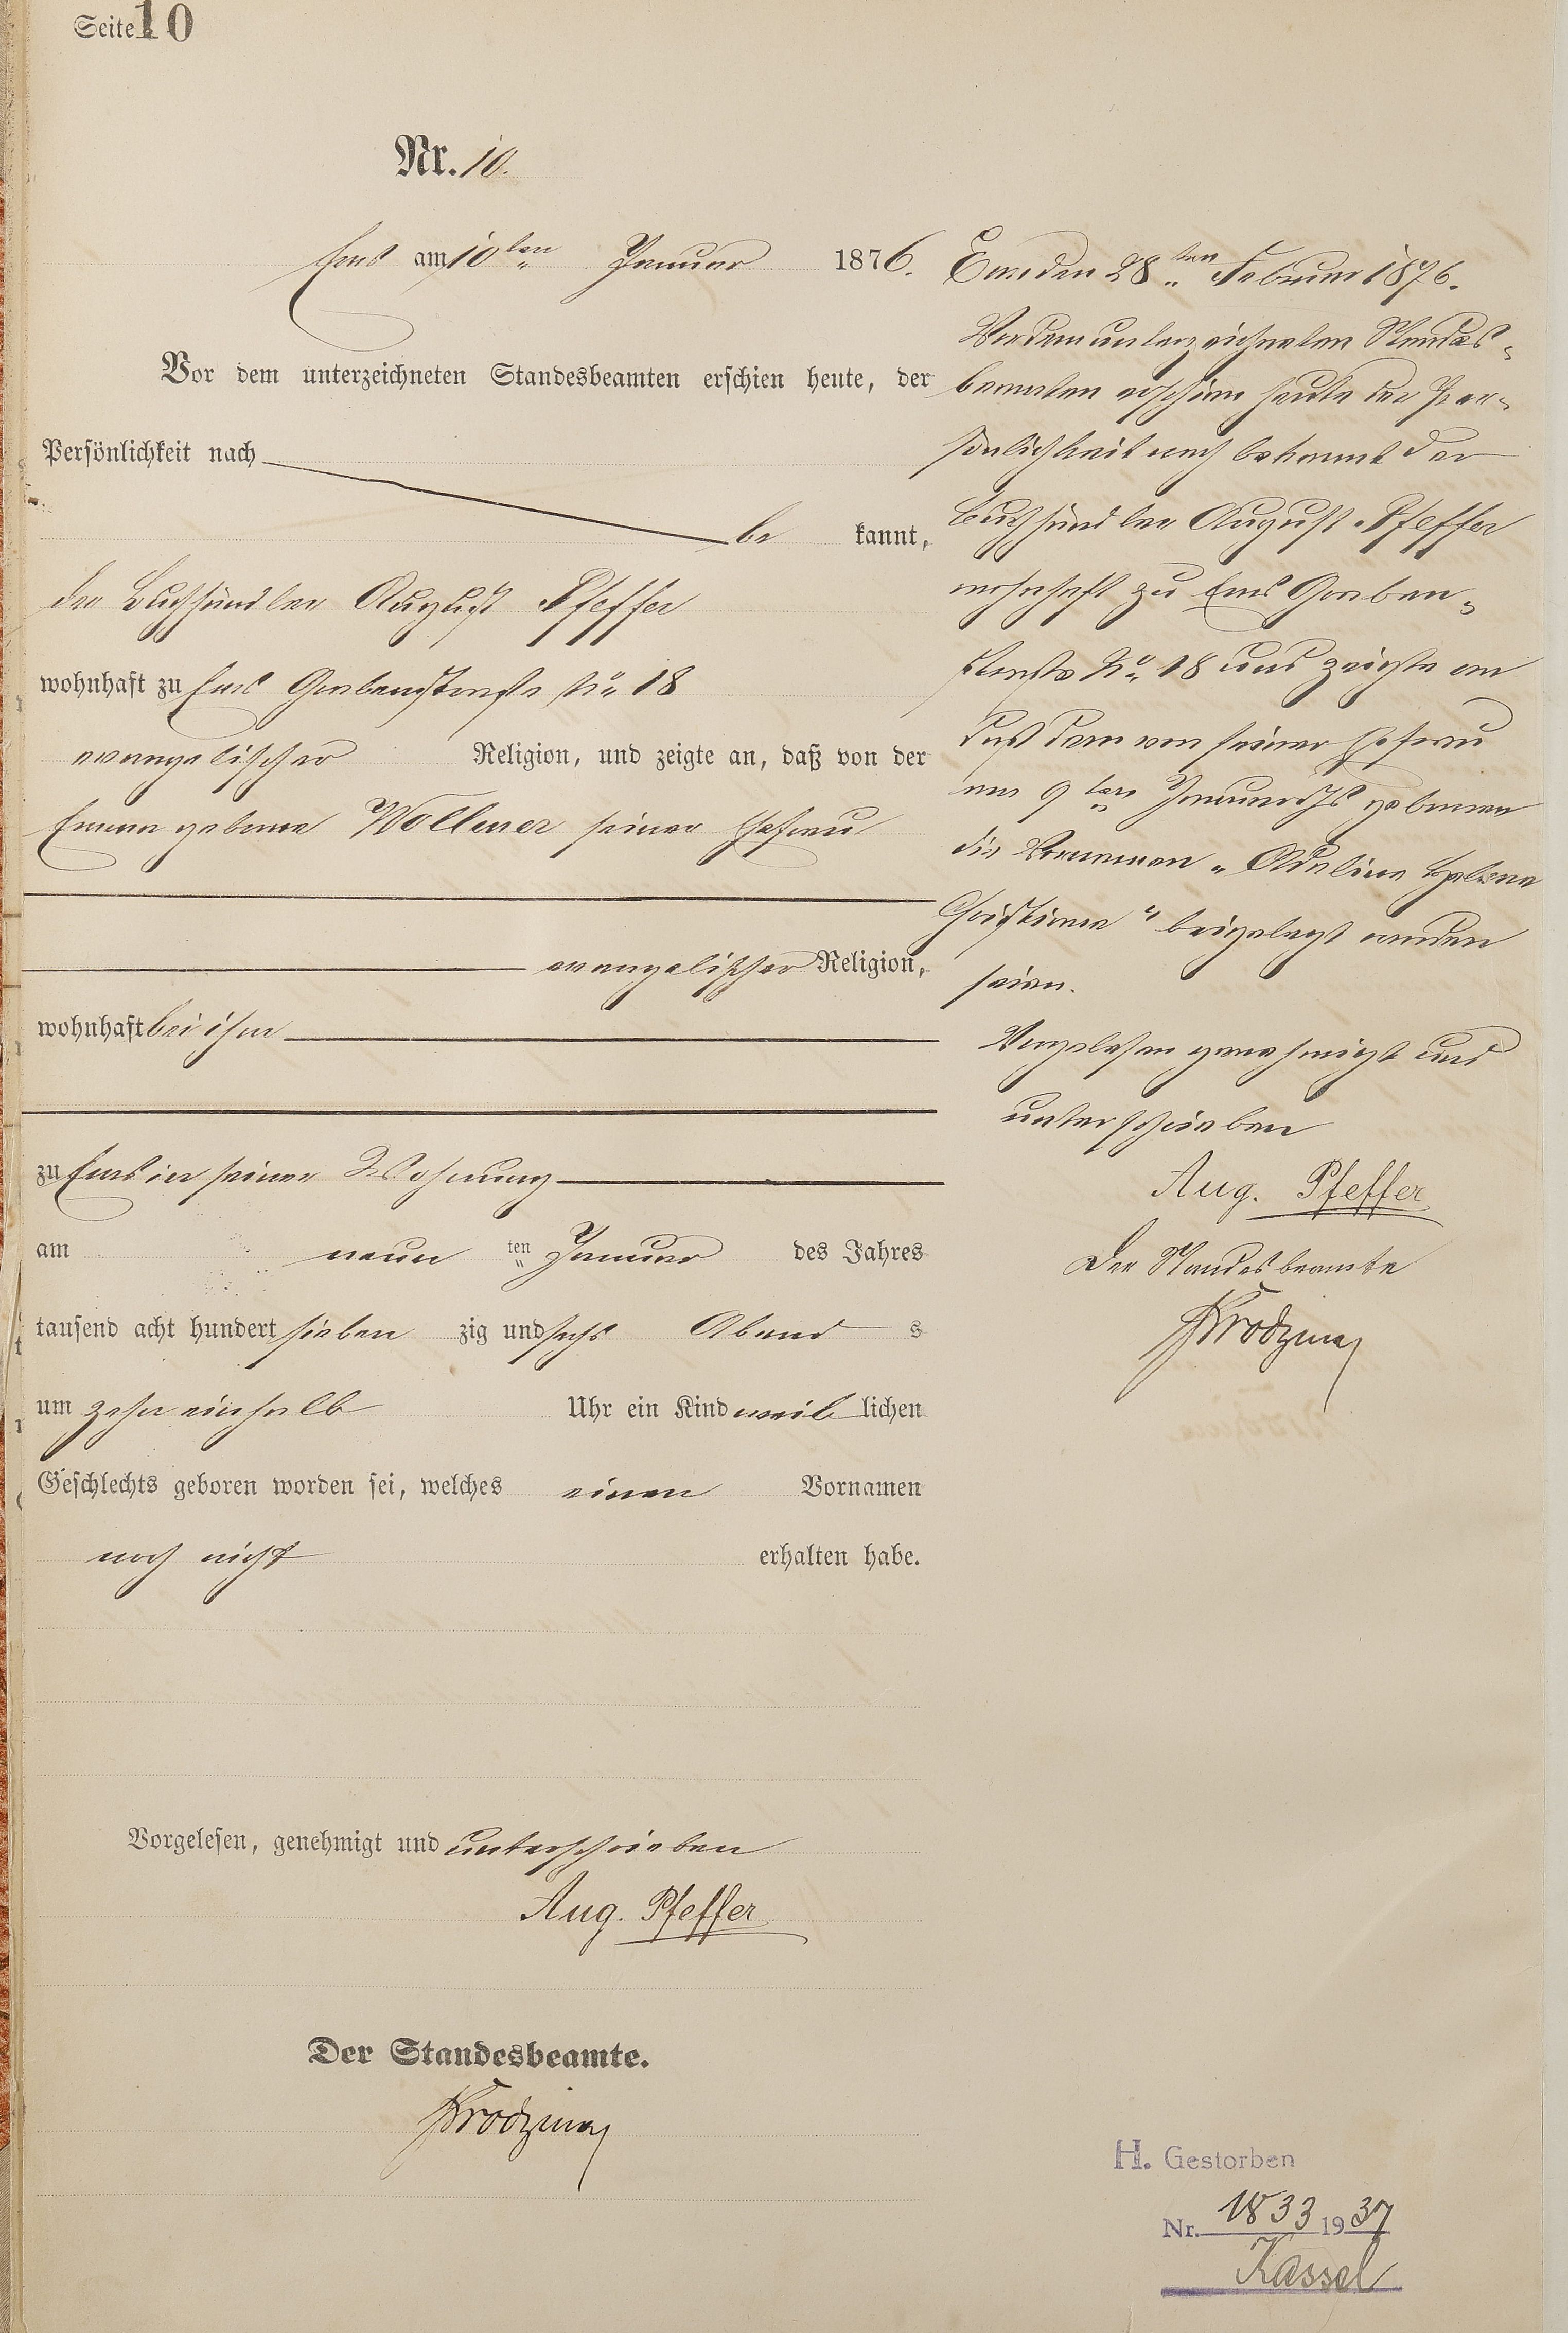 Seite 10
Nr. 10.
Ems am 10ten Januar 1876.
Vor dem unterzeichneten Standesbeamten erschien heute, der
Persönlichkeit nach
be kannt,
der Buchhändler August Pfeffer
wohnhaft zu Ems Grabenstraße No 18
evangelischer Religion, und zeigte an, daß von der
Emma geborne Vollmer seiner Ehefrau
evangelischer Religion,
wohnhaft bei ihm
zu Ems in seiner Wohnung
am neun ten Januar des Jahres
tausend acht hundert sieben zig und sechs Abend s
um zehn einhalb Uhr ein Kind weib lichen
Geschlechts geboren worden sei, welches einen Vornamen
noch nicht erhalten habe.
Vorgelesen, genehmigt und unterschrieben
Aug. Pfeffer
Der Standesbeamte.
Ems den 28ten Februar 1876.
Vor dem unterzeichneten Standes-
beamten erschien heute der Per-
sönlichkeit nach bekannt der
Buchhändler August Pfeffer
wohnhaft zu Ems Graben-
straße No 18 und zeigte an
daß dem von seiner Ehefrau
am 9ten Januar d Js gebornen
die Vornamen „Adeline Helene
Christiane" beigelegt worden
seien.
Vorgelesen genehmigt und
unterschrieben
Aug. Pfeffer
Der Standesbeamte
H. Gestorben
Nr. 1833 1937
Kassel